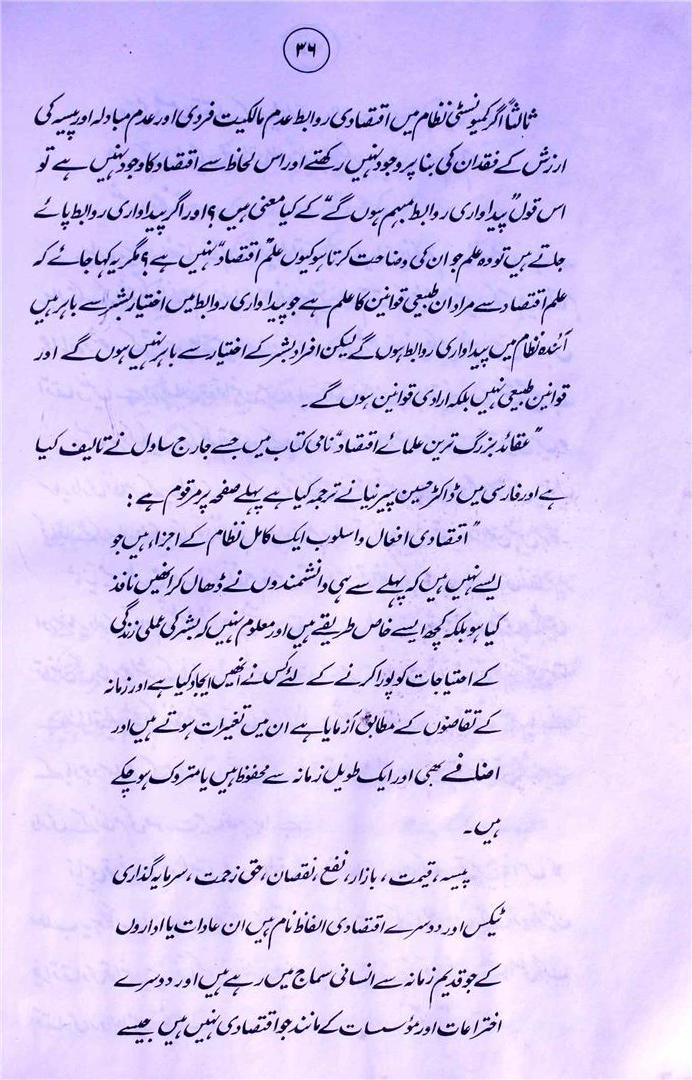 ۳۶
ثالثاً اگر کمیونسٹی نظام میں اقتصادی روابط عدم مالکیت فردی اور عدم مبادلہ اور پیسہ کی
ارزش کے فقدان کی بنا پر وجود نہیں رکھتے اور اس لحاظ سے اقتصاد کا وجود نہیں ہے تو
اس قول "پیداواری روابط مبہم ہوں گے" کے کیا معنی ہیں؟ اور اگر پیداواری روابط پائے
جاتے ہیں تو وہ علم جو ان کی وضاحت کرتا ہو کیوں علم "اقتصاد" نہیں ہے؟ مگر یہ کہا جائے کہ
علم اقتصاد سے مراد ان طبیعی قوانین کا علم ہے جو پیداواری روابط میں اختیار بشر سے باہر ہیں
آئندہ نظام میں پیداواری روابط ہوں گے لیکن افراد بشر کے اختیار سے باہر نہیں ہوں گے اور
قوانین طبیعی نہیں بلکہ ارادی قوانین ہوں گے۔
"عقائد بزرگ ترین علمائے اقتصاد" نامی کتاب میں جسے جارج ساول نے تالیف کیا
ہے اور فارسی میں ڈاکٹر حسین پیرنیا نے ترجمہ کیا ہے پہلے صفحہ پر مرقوم ہے:
"اقتصادی افعال و اسلوب ایک کامل نظام کے اجزاء ہیں جو
ایسے نہیں ہیں کہ پہلے سے ہی دانشمندوں نے ڈھال کر انھیں نافذ
کیا ہو بلکہ کچھ ایسے خاص طریقے ہیں اور معلوم نہیں کہ بشر کی عملی زندگی
کے احتیاجات کو پورا کرنے کے لئے کس نے انھیں ایجاد کیا ہے اور زمانہ
کے تقاضوں کے مطابق آزمایا ہے ان میں تغیرات ہوتے ہیں اور
اضافے بھی اور ایک طویل زمانہ سے محفوظ ہیں یا متروک ہو چکے
ہیں۔
پیسہ، قیمت، بازار، نفع، نقصان، حق زحمت، سرمایہ گذاری
ٹیکس اور دوسرے اقتصادی الفاظ نام ہیں ان عادات یا اداروں
کے جو قدیم زمانہ سے انسانی سماج میں رہے ہیں اور دوسرے
اختراعات اور مؤسسات کے مانند جو اقتصادی نہیں ہیں جیسے